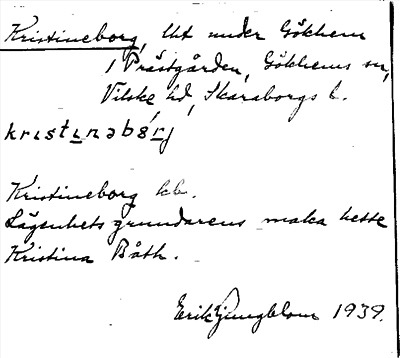 Kristineborg, lht under Gökhem
1 Prästgården, Gökhems sn,
Vilske hd, Skaraborgs l.
krɩstɩnəbörj
Kristineborg kb.
Lägenhetsgrundarens maka hette
Kristina Bååth.
Erik Ljungblom 1939.